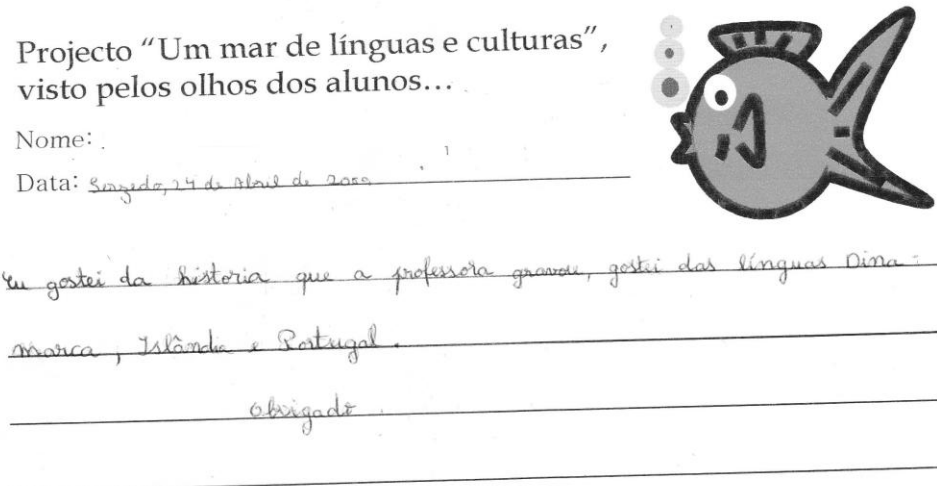 Projecto “Um mar de línguas e culturas”,
visto pelos olhos dos alunos…
Nome:
Data: Serzedo, 24 de Abril de
Eu gostei da historia que a professora gravou, gostei das línguas Dina-
marca, Islândia e Portugal.
Obrigado